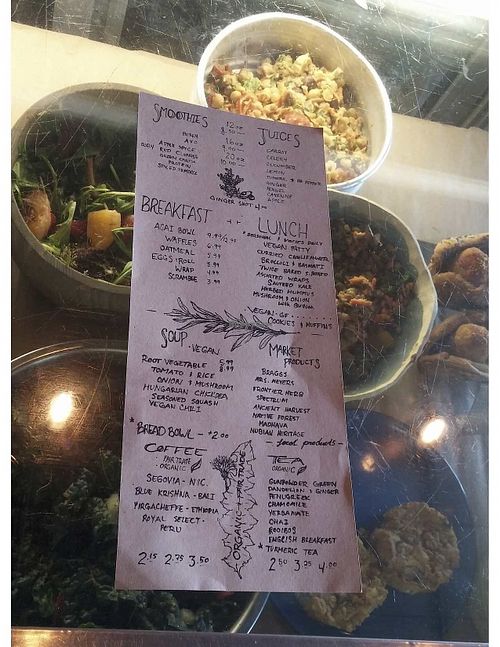 SMOOTHIES
12oz
8.50
16oz
9.00
20oz
10.00
JUICES
CARROT
CELERY
CUCUMBER
LEMON
GINGER
FENNEL
CAYENNE
APPLE
GINGER SHOT 4.00
BREAKFAST
ACAI BOWL 9.99/12.99
WAFFLES 6.99
OATMEAL 5.99
EGGS+ROLL 5.99
WRAP 4.99
SCRAMBLE 3.99
LUNCH
VEGAN PATTY
CURRIED CAULIFLOWER
BROCCOLI & BASMATI
TWICE BAKED S. POTATO
ASSORTED WRAPS
SAUTEED KALE
HERBED HUMMUS
MUSHROOM & ONION
WITH QUINOA
VEGAN-GF
COOKIES & MUFFINS
SOUP
• VEGAN
ROOT VEGETABLE 5.99
TOMATO & RICE 8.99
ONION & MUSHROOM
HUNGARIAN CHICKPEA
SEASONED SQUASH
VEGAN CHILI
* BREAD BOWL - +2.00
MARKET
PRODUCTS
BRAGGS
MRS. MEYERS
FRONTIER HERB
SPECTRUM
ANCIENT HARVEST
NATIVE FOREST
MADHAVA
NUBIAN HERITAGE
- local products -
COFFEE
FAIR TRADE
ORGANIC
SEGOVIA - NIC.
BLUE KRISHNA - BALI
YIRGACHEFFE - ETHIOPIA
ROYAL SELECT -
PERU
2.15 2.75 3.50
ORGANIC + FAIR TRADE
TEA
ORGANIC
GUNPOWDER GREEN
DANDELION & GINGER
FENUGREEK
CHAMOMILE
YERBA MATE
CHAI
ROOIBOS
ENGLISH BREAKFAST
* TURMERIC TEA
2.50 3.25 4.00